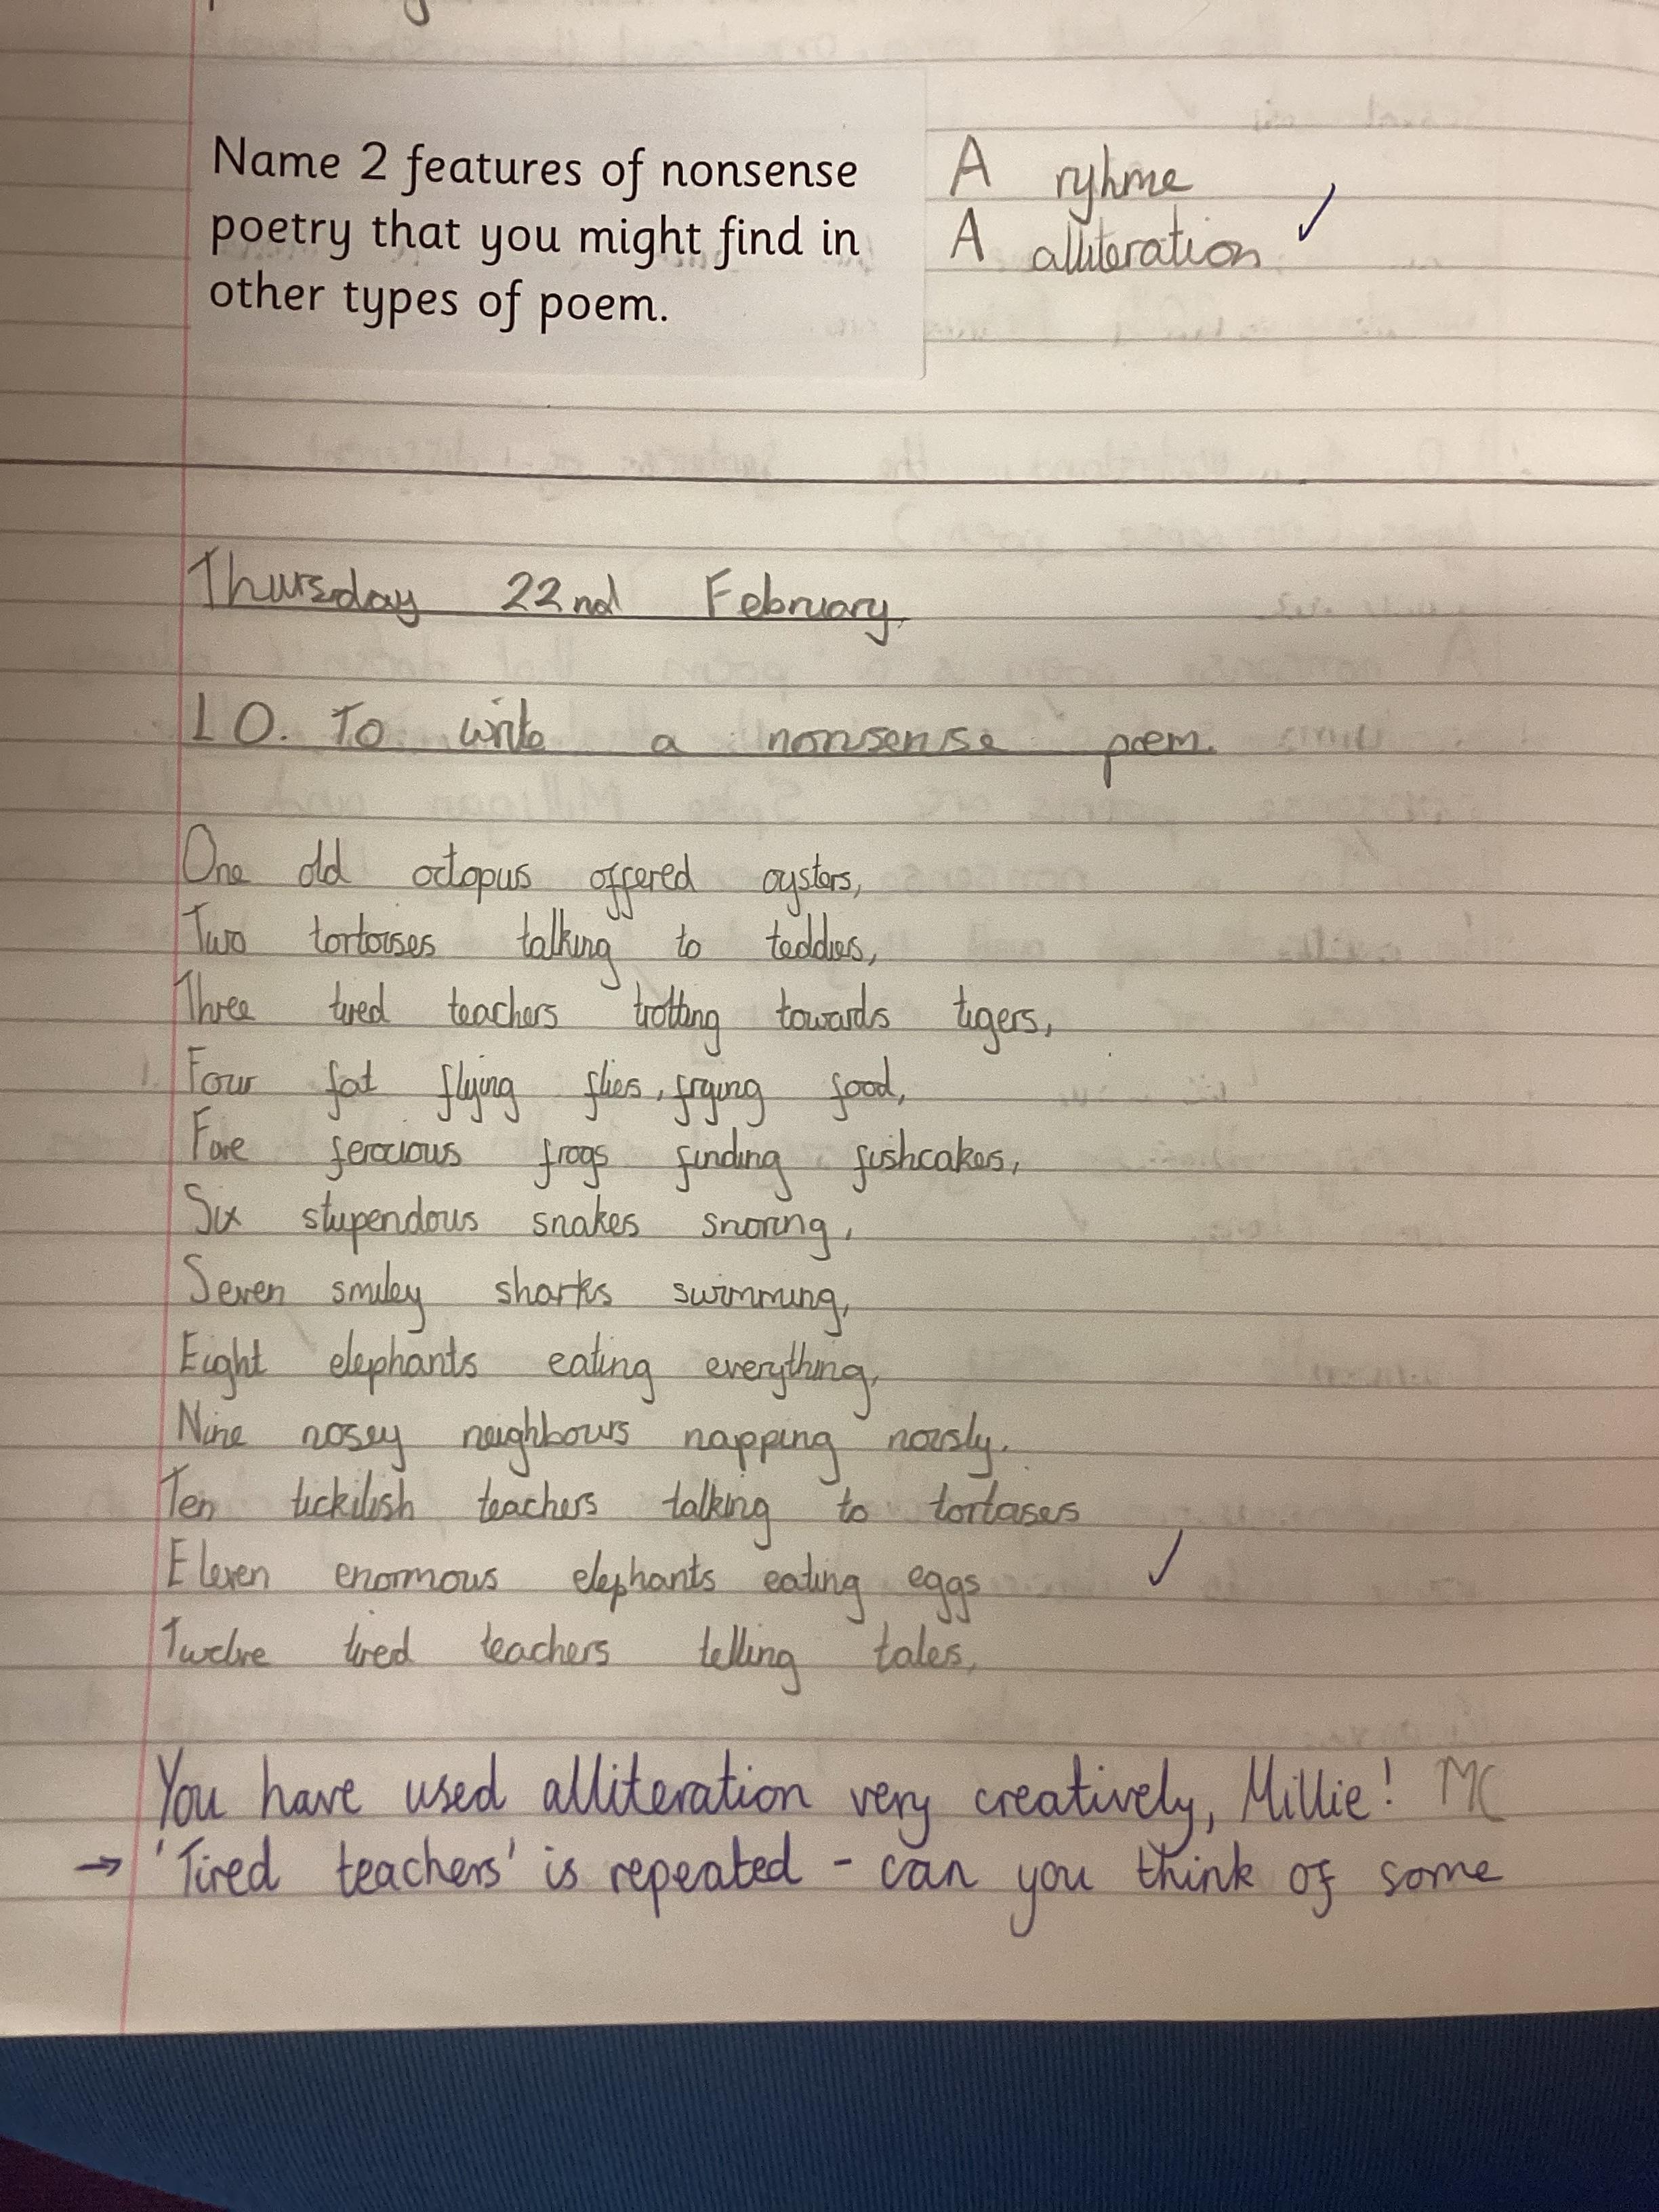 Name 2 features of nonsense
poetry that you might find in
other types of poem.
A ryhme
A alliteration
Thursday 22nd February.
LO. To write a nonsense poem.
One old octopus offered oysters,
Two tortoises talking to teddies,
Three tired teachers trotting towards tigers,
Four fat flying flies, frying food,
Five ferocious frogs finding fishcakes,
Six stupendous snakes snoring,
Seven smiley sharks swimming,
Eight elephants eating everything,
Nine nosey neighbours napping noisly.
Ten tickilish teachers talking to tortoises
Eleven enormous elephants eating eggs
Twelve tired teachers telling tales,
You have used alliteration very creatively, Millie! MC
→ 'Tired teachers' is repeated - can you think of some